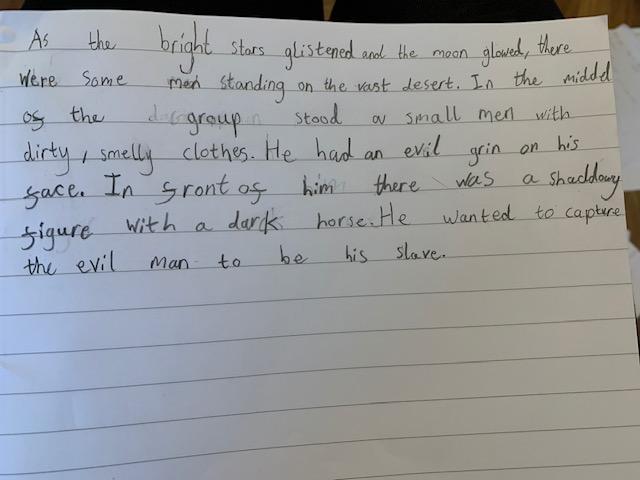 As the bright stars glistened and the moon glowed, there
were some men standing on the vast desert. In the middl
of the group stood a small men with
dirty, smelly clothes. He had an evil grin on his
face. In front of him there was a shaddowy
figure with a darck horse. He wanted to capture
the evil man to be his slave.